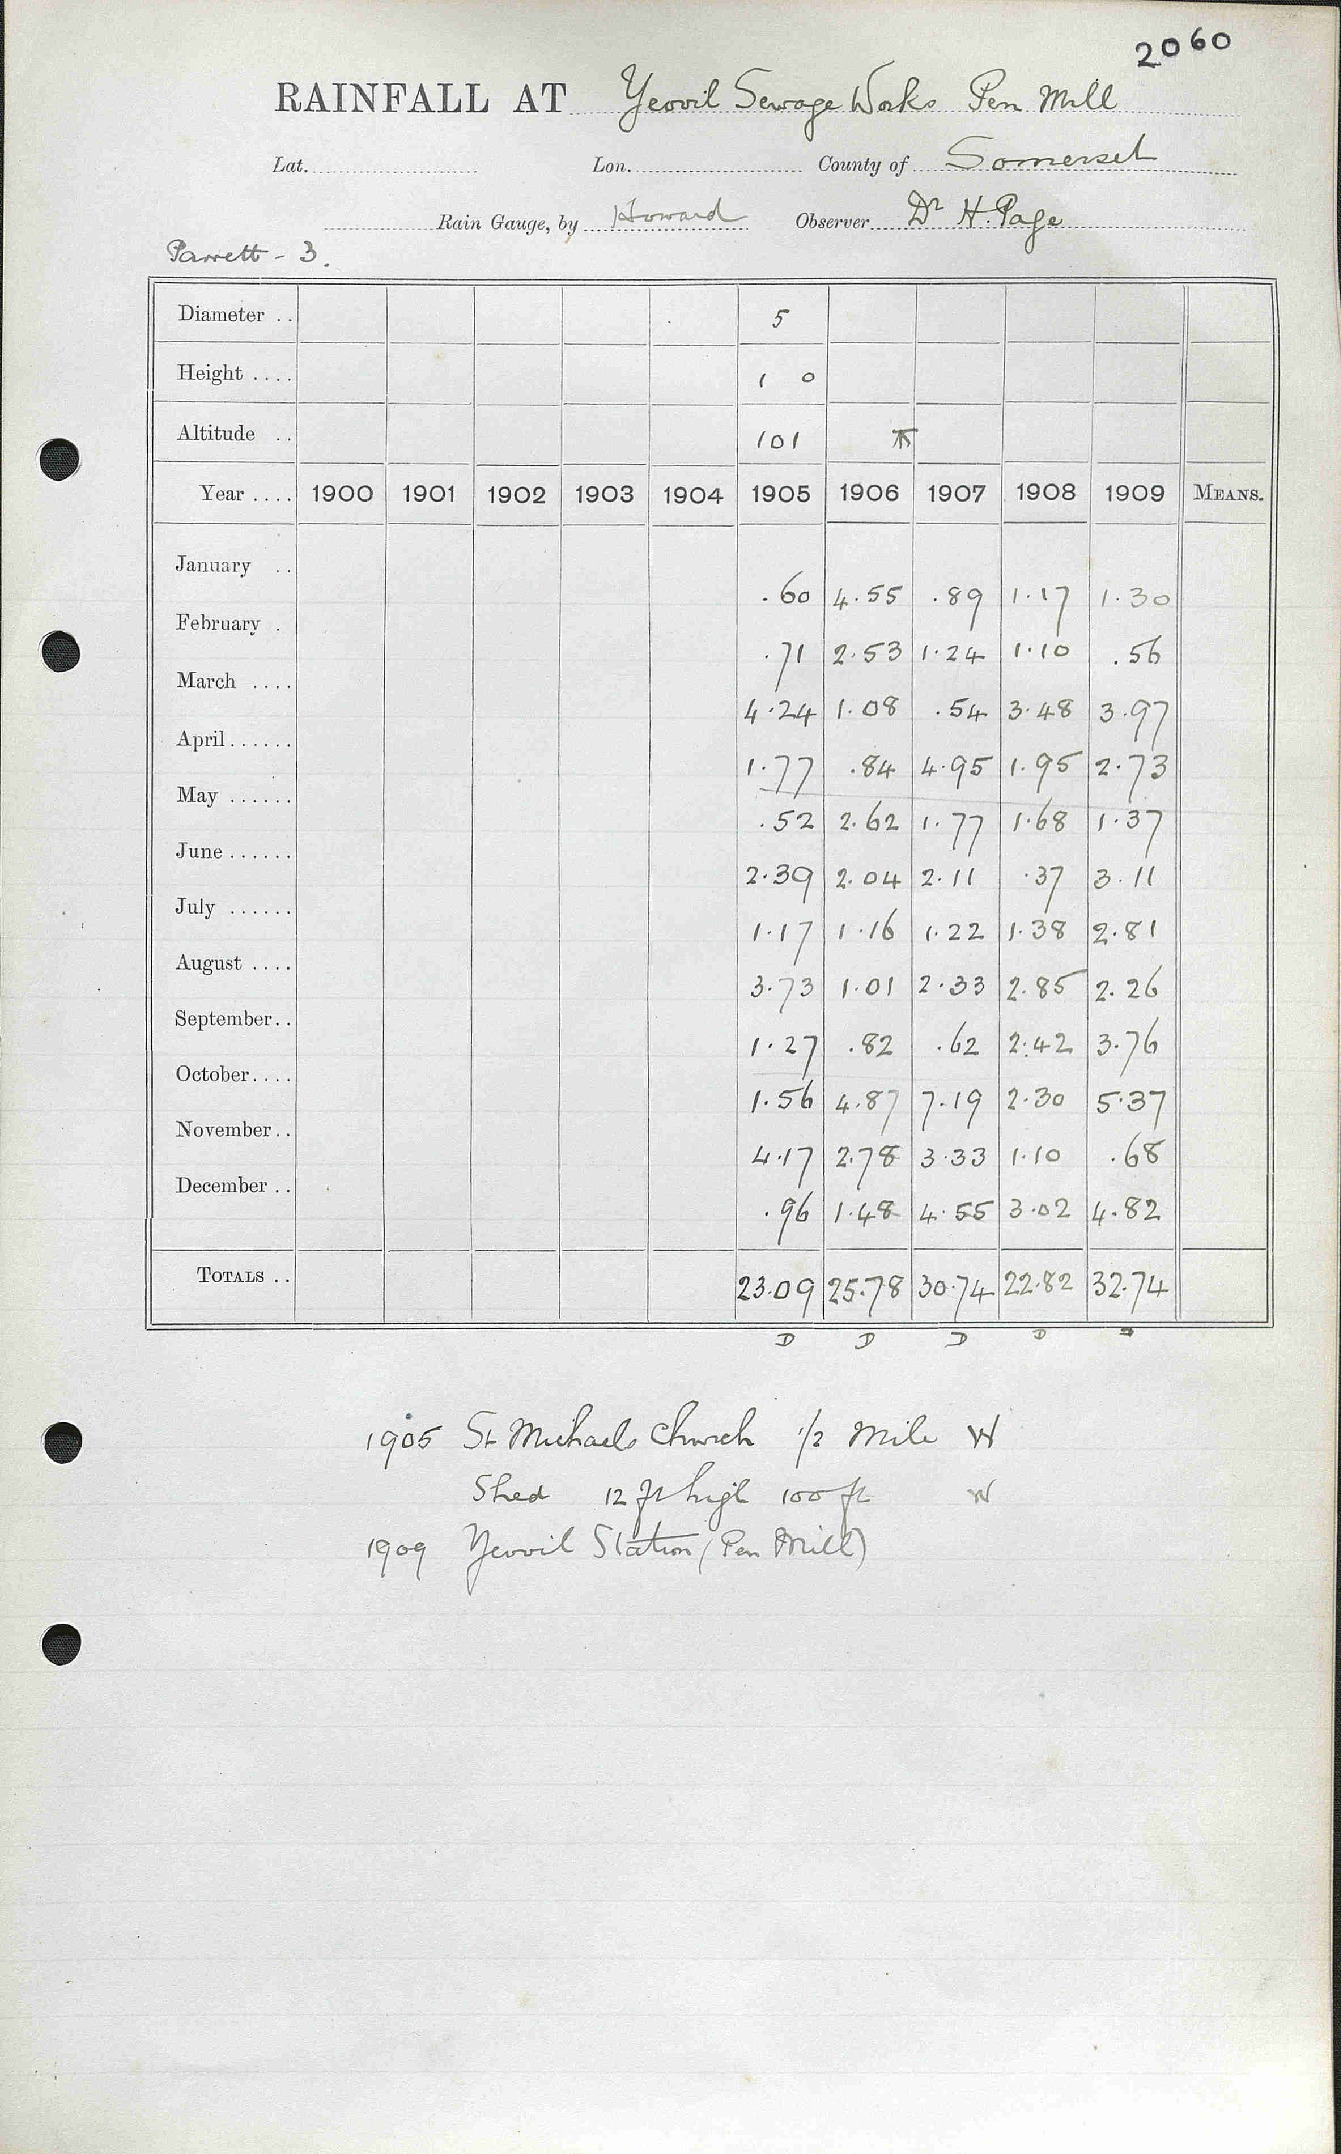 2060
RAINFALL AT Yeovil Sewage Works Pen Mill
Lat. Lon. County of Somerset
Rain Gauge, by Howard Observer Dr H. Page
Parrett - 3.
Diameter .. 5
Height .... 1 0
Altitude .. 101
Year .... 1900 1901 1902 1903 1904 1905 1906 1907 1908 1909 MEANS.
January .. .60 4.55 .89 1.17 1.30
February . .71 2.53 1.24 1.10 .56
March .... 4.24 1.08 .54 3.48 3.97
April...... 1.77 .84 4.95 1.95 2.73
May ...... .52 2.62 1.77 1.68 1.37
June...... 2.39 2.04 2.11 .37 3.11
July ...... 1.17 1.16 1.22 1.38 2.81
August .... 3.73 1.01 2.33 2.85 2.26
September.. 1.27 .82 .62 2.42 3.76
October.... 1.56 4.87 7.19 2.30 5.37
November.. 4.17 2.78 3.33 1.10 .68
December .. .96 1.48 4.55 3.02 4.82
TOTALS .. 23.09 25.78 30.74 22.82 32.74
D D D D D
1905 St Michaels Church 1/2 Mile W
Shed 12 ft high 100 ft W
1909 Yeovil Station (Pen Mill)